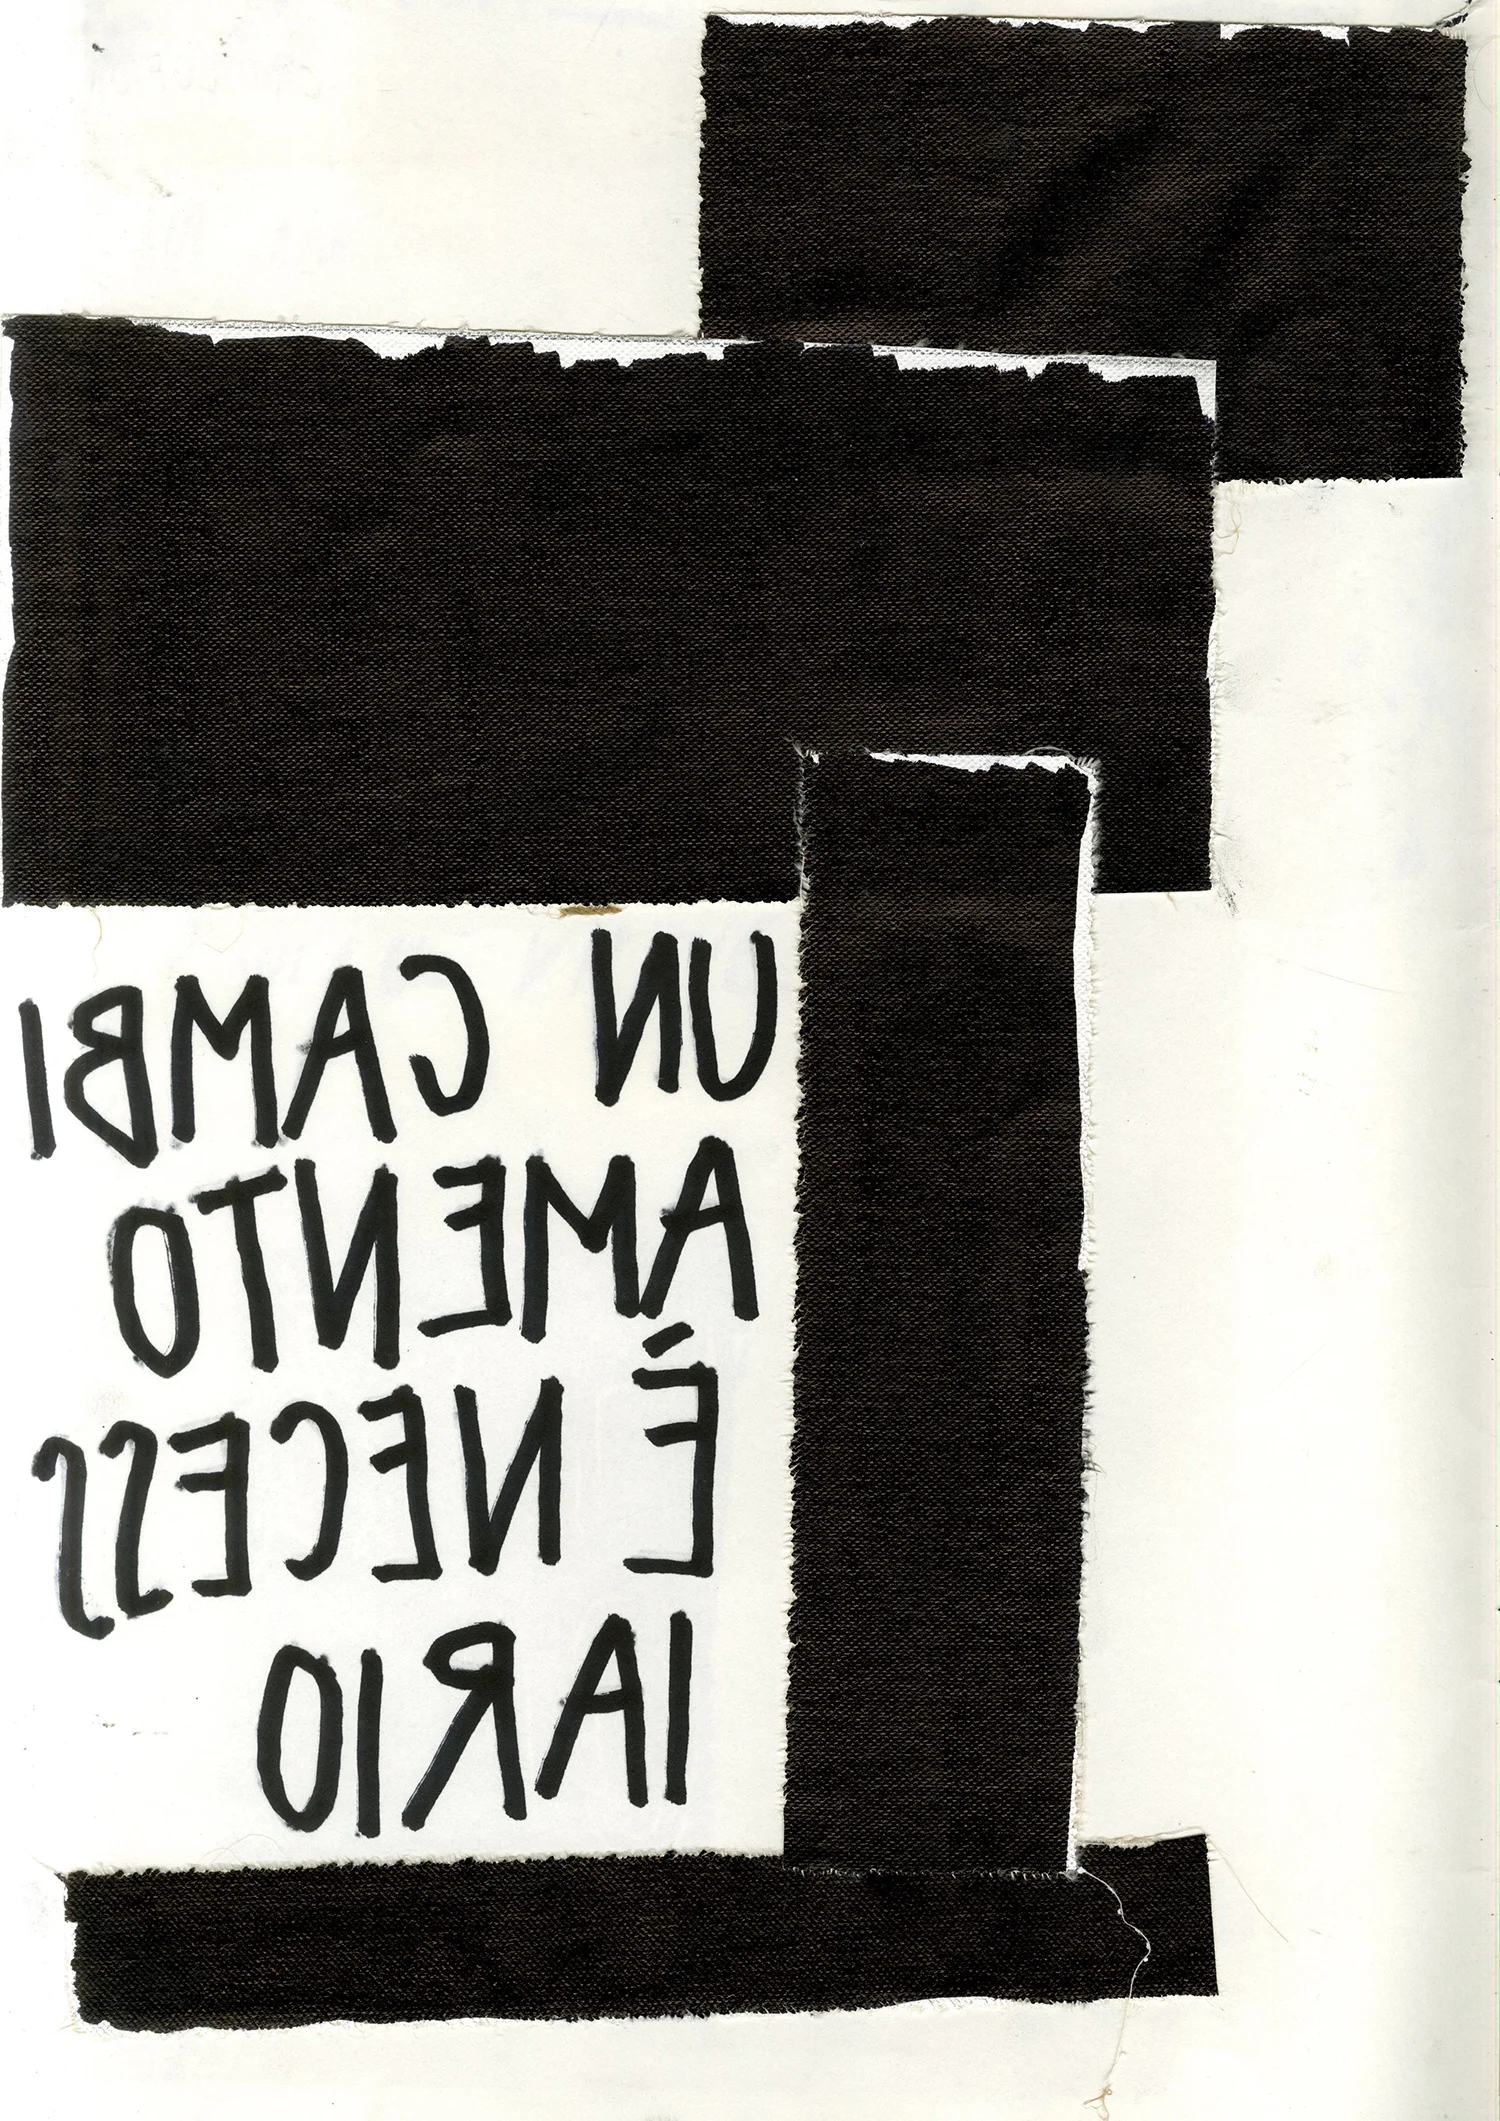 UN CAMBI
AMENTO
É NECESS
IARIO